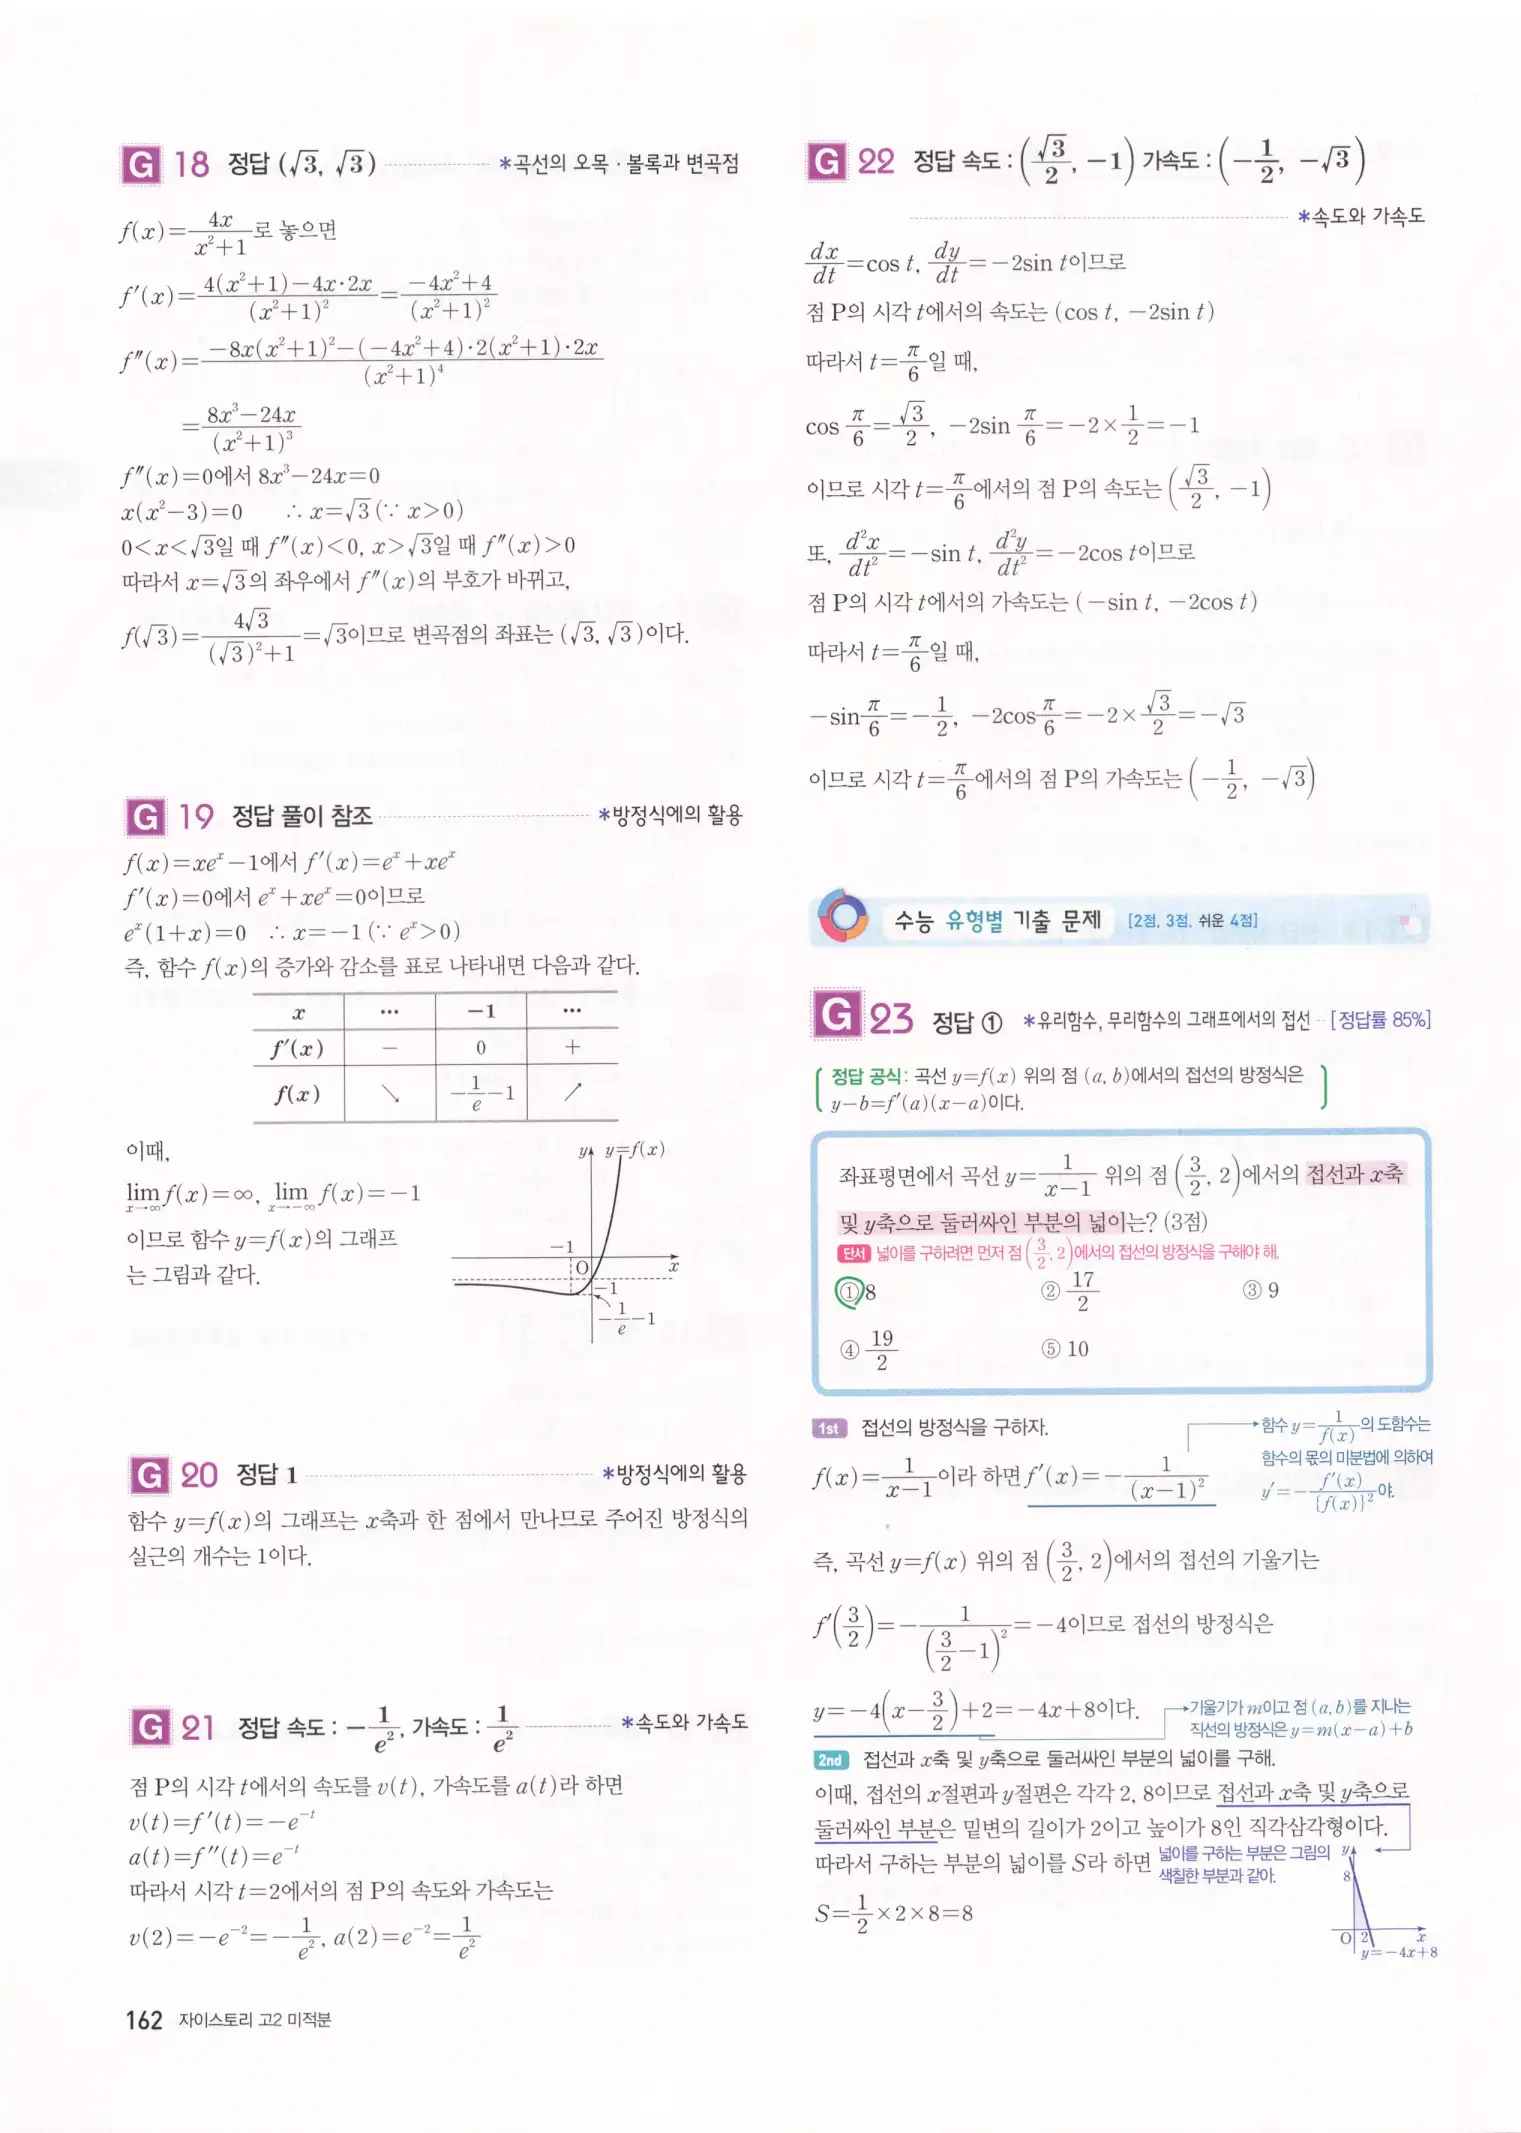 G 18 정답 (√3, √3) *곡선의 오목·볼록과 변곡점
f(x)=4x/(x²+1)로 놓으면
f′(x)={4(x²+1)-4x·2x}/(x²+1)²=(-4x²+4)/(x²+1)²
f″(x)={-8x(x²+1)²-(-4x²+4)·2(x²+1)·2x}/(x²+1)⁴
=(8x³-24x)/(x²+1)³
f″(x)=0에서 8x³-24x=0
x(x²-3)=0 ∴ x=√3 (∵ x>0)
0<x<√3일 때 f″(x)<0, x>√3일 때 f″(x)>0
따라서 x=√3의 좌우에서 f″(x)의 부호가 바뀌고,
f(√3)=4√3/{(√3)²+1}=√3이므로 변곡점의 좌표는 (√3, √3)이다.
G 19 정답 풀이 참조 *방정식에의 활용
f(x)=xeˣ-1에서 f′(x)=eˣ+xeˣ
f′(x)=0에서 eˣ+xeˣ=0이므로
eˣ(1+x)=0 ∴ x=-1 (∵ eˣ>0)
즉, 함수 f(x)의 증가와 감소를 표로 나타내면 다음과 같다.
x … -1 …
f′(x) - 0 +
f(x) ↘ -1/e-1 ↗
이때,
lim x→∞ f(x)=∞, lim x→-∞ f(x)=-1
이므로 함수 y=f(x)의 그래프
는 그림과 같다.
y y=f(x)
-1
O x
-1
-1/e-1
G 20 정답 1 *방정식에의 활용
함수 y=f(x)의 그래프는 x축과 한 점에서 만나므로 주어진 방정식의
실근의 개수는 1이다.
G 21 정답 속도 : -1/e², 가속도 : 1/e² *속도와 가속도
점 P의 시각 t에서의 속도를 v(t), 가속도를 a(t)라 하면
v(t)=f′(t)=-e⁻ᵗ
a(t)=f″(t)=e⁻ᵗ
따라서 시각 t=2에서의 점 P의 속도와 가속도는
v(2)=-e⁻²=-1/e², a(2)=e⁻²=1/e²
162 자이스토리 고2 미적분
G 22 정답 속도 : (√3/2, -1) 가속도 : (-1/2, -√3)
*속도와 가속도
dx/dt=cos t, dy/dt=-2sin t이므로
점 P의 시각 t에서의 속도는 (cos t, -2sin t)
따라서 t=π/6일 때,
cos π/6=√3/2, -2sin π/6=-2×1/2=-1
이므로 시각 t=π/6에서의 점 P의 속도는 (√3/2, -1)
또, d²x/dt²=-sin t, d²y/dt²=-2cos t이므로
점 P의 시각 t에서의 가속도는 (-sin t, -2cos t)
따라서 t=π/6일 때,
-sin π/6=-1/2, -2cos π/6=-2×√3/2=-√3
이므로 시각 t=π/6에서의 점 P의 가속도는 (-1/2, -√3)
수능 유형별 기출 문제 [2점, 3점, 쉬운 4점]
G 23 정답 ① *유리함수, 무리함수의 그래프에서의 접선 [정답률 85%]
정답 공식 : 곡선 y=f(x) 위의 점 (a, b)에서의 접선의 방정식은
y-b=f′(a)(x-a)이다.
좌표평면에서 곡선 y=1/(x-1) 위의 점 (3/2, 2)에서의 접선과 x축
및 y축으로 둘러싸인 부분의 넓이는? (3점)
단서 넓이를 구하려면 먼저 점 (3/2, 2)에서의 접선의 방정식을 구해야 해.
① 8 ② 17/2 ③ 9
④ 19/2 ⑤ 10
1st 접선의 방정식을 구하자.
f(x)=1/(x-1)이라 하면 f′(x)=-1/(x-1)²
함수 y=1/f(x)의 도함수는
함수의 몫의 미분법에 의하여
y′=-f′(x)/{f(x)}²야.
즉, 곡선 y=f(x) 위의 점 (3/2, 2)에서의 접선의 기울기는
f′(3/2)=-1/(3/2-1)²=-4이므로 접선의 방정식은
y=-4(x-3/2)+2=-4x+8이다.
기울기가 m이고 점 (a, b)를 지나는
직선의 방정식은 y=m(x-a)+b
2nd 접선과 x축 및 y축으로 둘러싸인 부분의 넓이를 구해.
이때, 접선의 x절편과 y절편은 각각 2, 8이므로 접선과 x축 및 y축으로
둘러싸인 부분은 밑변의 길이가 2이고 높이가 8인 직각삼각형이다.
따라서 구하는 부분의 넓이를 S라 하면
넓이를 구하는 부분은 그림의
색칠한 부분과 같아.
S=1/2×2×8=8
y
8
O 2 x
y=-4x+8